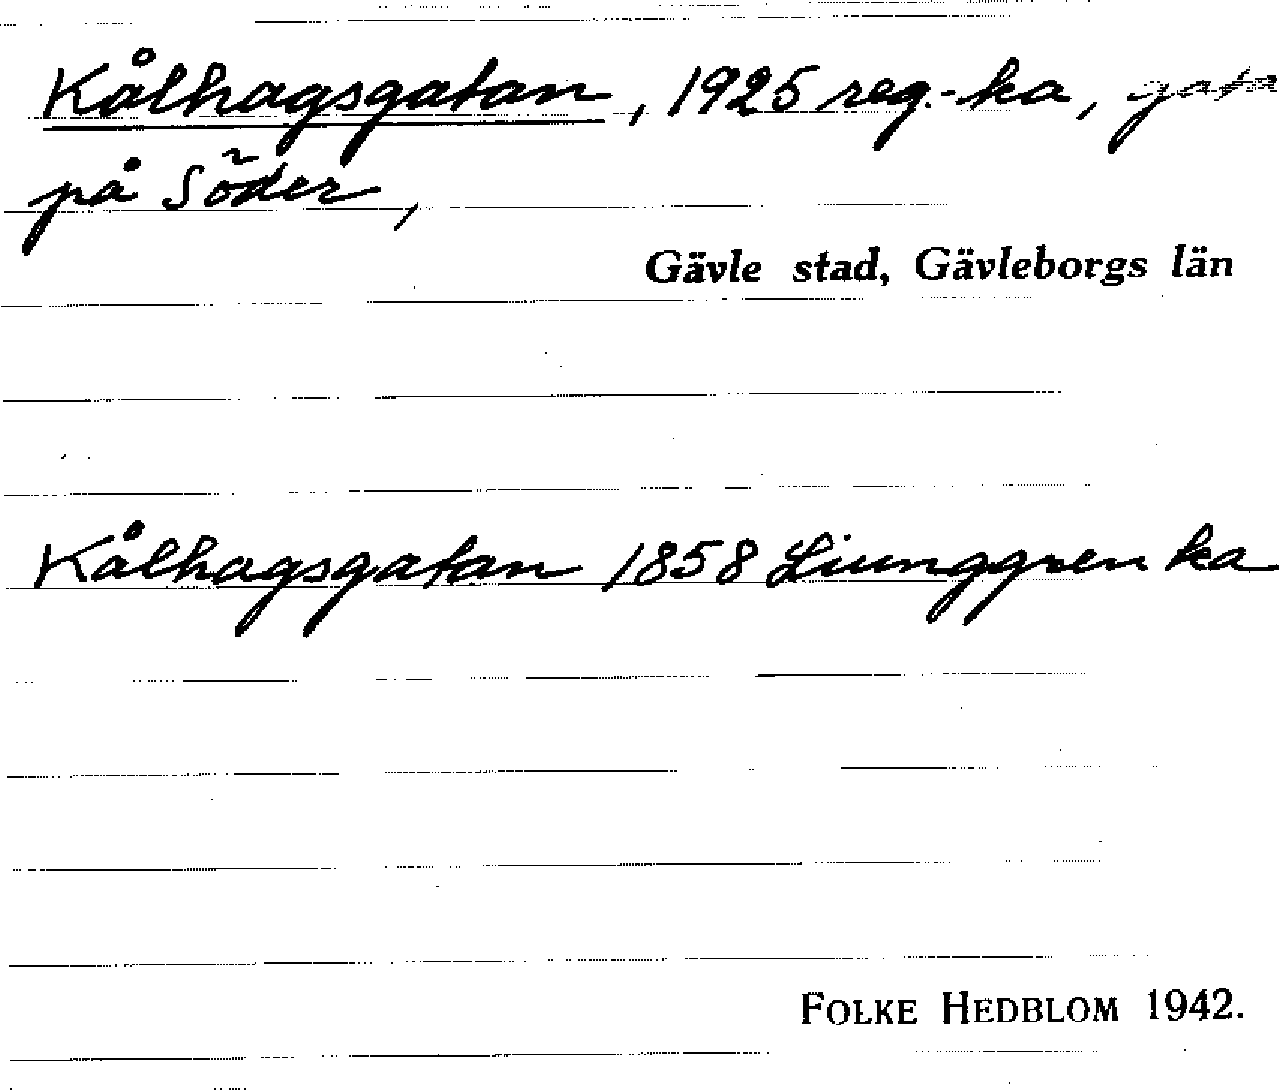 Kålhagsgatan, 1925 reg.-ka, gata
på Söder,
Gävle stad, Gävleborgs län
Kålhagsgatan 1858 Ljunggren ka
FOLKE HEDBLOM 1942.